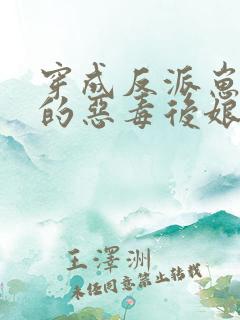 穿成反派崽
的惡毒後娘
王澤洲
未经同意禁止转载